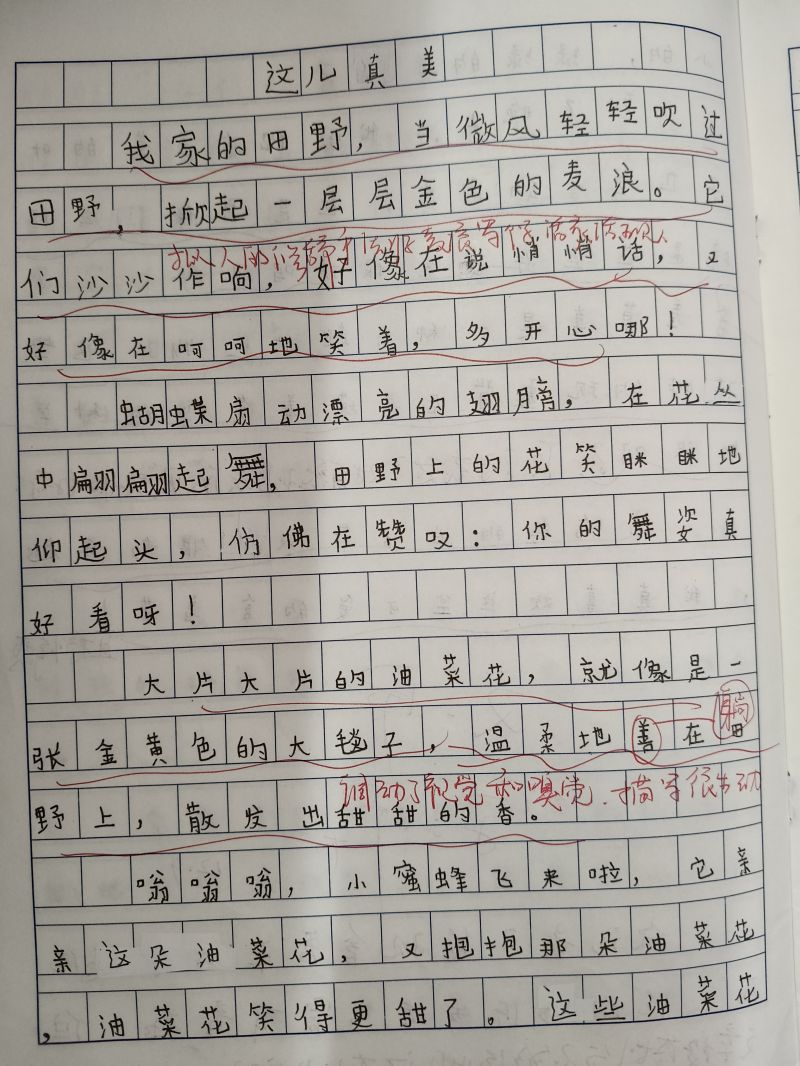 这儿真美
我家的田野，当微风轻轻吹过
田野，掀起一层层金色的麦浪。它
们沙沙作响，好像在说悄悄话，又
好像在呵呵地笑着，多开心哪！
蝴蝶扇动漂亮的翅膀，在花丛
中翩翩起舞，田野上的花笑眯眯地
仰起头，仿佛在赞叹：你的舞姿真
好看呀！
大片大片的油菜花，就像是一
躺
张金黄色的大毯子，温柔地善在田
调动了视觉和嗅觉，描写很生动
野上，散发出甜甜的香。
嗡嗡嗡，小蜜蜂飞来啦，它亲
亲这朵油菜花，又抱抱那朵油菜花
，油菜花笑得更甜了。这些油菜花